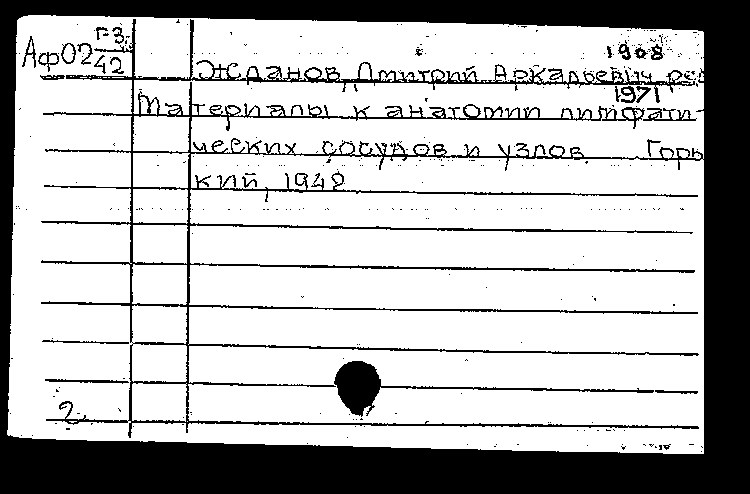 Аф02 Г-3
42
1908
Жданов, Дмитрий Аркадьевич ред
1971
Материалы к анатомии лимфати-
ческих сосудов и узлов. Горь
кий, 1942
2